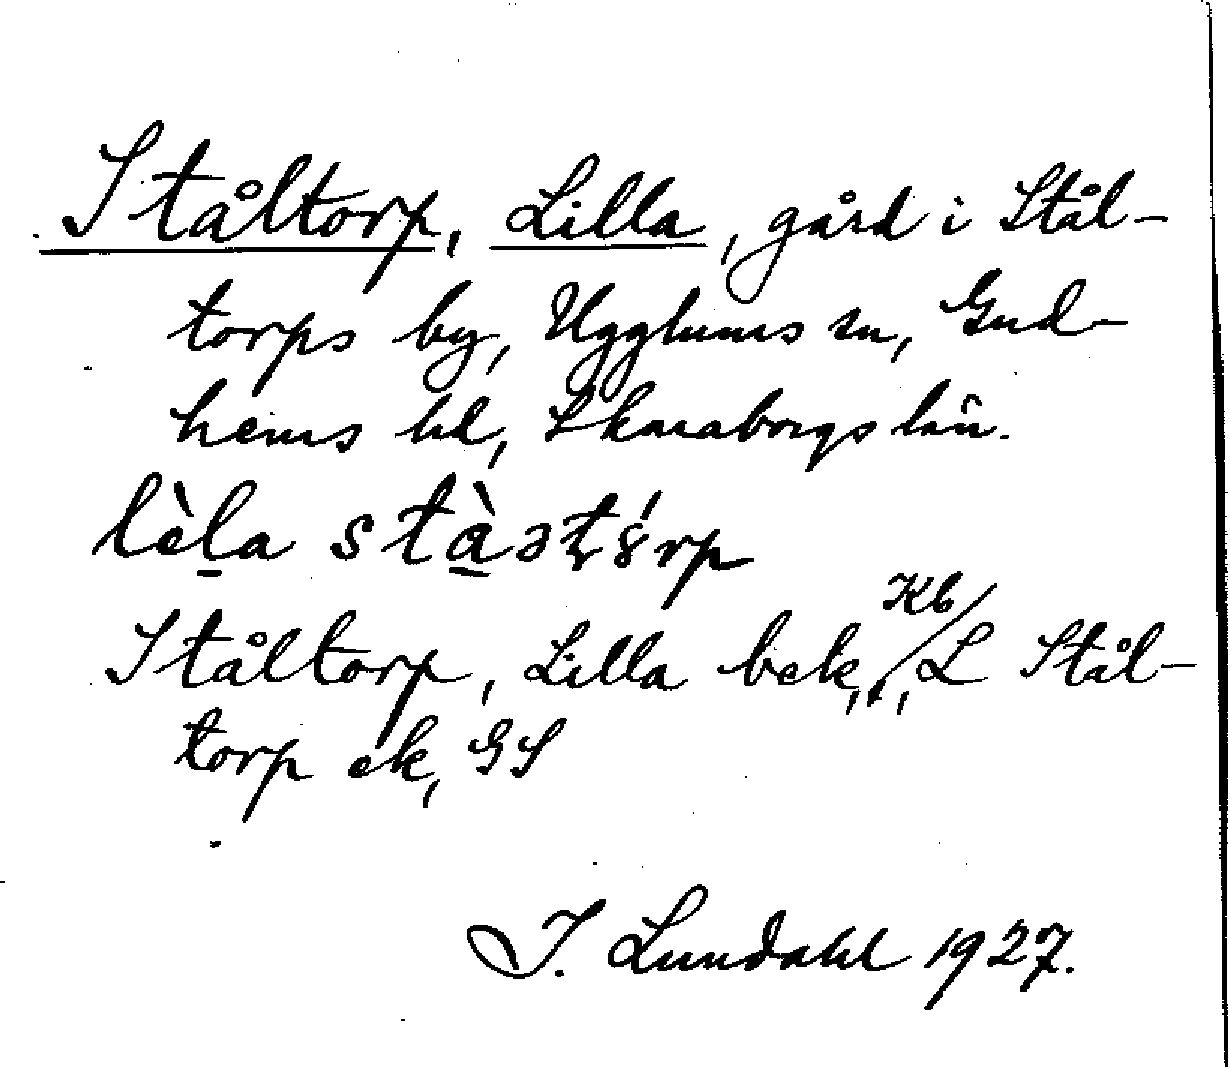 Ståltorp, Lilla, gård i Stål-
torps by, Ugglums sn, Gud-
hems hd, Skaraborgs län.
lèl̠a stà̠əʈȣ́rp
Ståltorp, Lilla bek, Kb/, L Stål-
torp ek, GS
I. Lundahl 1927.